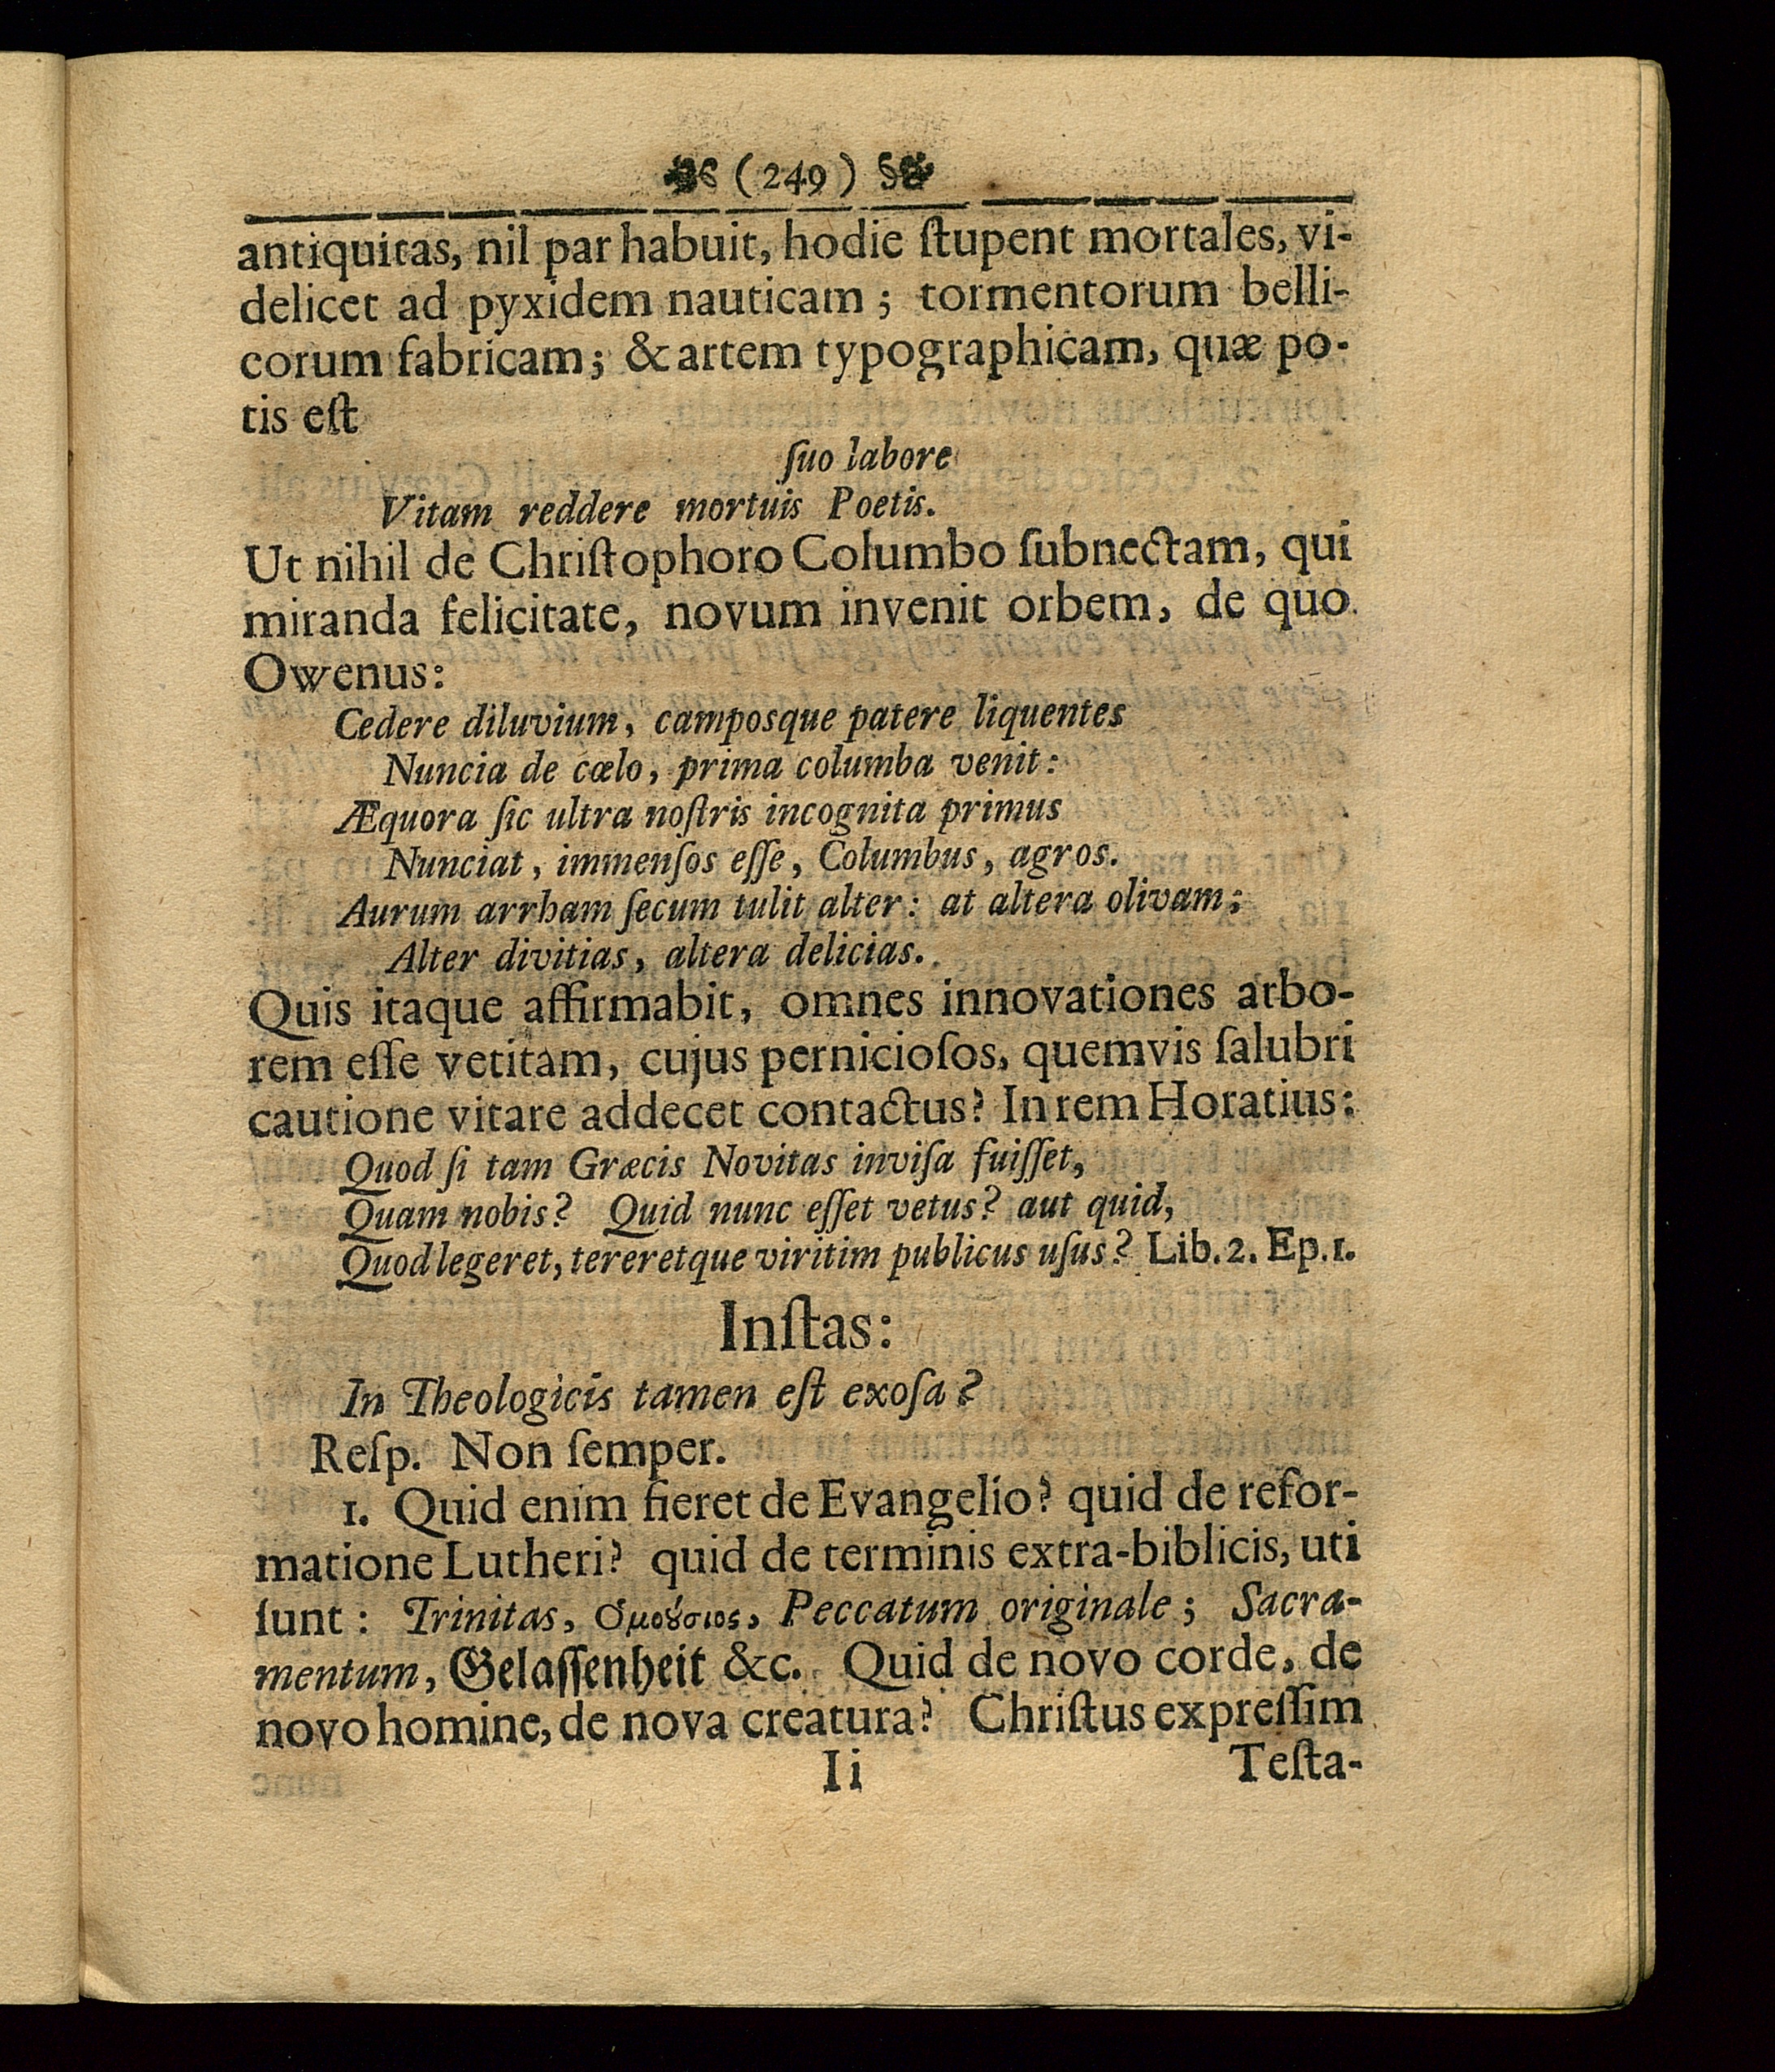 (249)
antiquitas, nil par habuit, hodie ſtupent mortales, vi-
delicet ad pyxidem nauticam; tormentorum belli-
corum fabricam; & artem typographicam, quæ po-
tis eſt
ſuo labore
Vitam reddere mortuis Poetis.
Ut nihil de Chriſtophoro Columbo ſubnectam, qui
miranda felicitate, novum invenit orbem, de quo
Owenus:
Cedere diluvium, camposque patere liquentes
Nuncia de cœlo, prima columba venit:
Æquora ſic ultra noſtris incognita primus
Nunciat, immenſos eſſe, Columbus, agros.
Aurum arrham ſecum tulit alter: at altera olivam;
Alter divitias, altera delicias.
Quis itaque affirmabit, omnes innovationes arbo-
rem eſſe vetitam, cujus pernicioſos, quemvis ſalubri
cautione vitare addecet contactus? In rem Horatius:
Quod ſi tam Græcis Novitas inviſa fuiſſet,
Quam nobis? Quid nunc eſſet vetus? aut quid,
Quod legeret, tereretque viritim publicus uſus? Lib. 2. Ep. 1.
Inſtas:
In Theologicis tamen eſt exoſa?
Reſp. Non ſemper.
1. Quid enim fieret de Evangelio? quid de refor-
matione Lutheri? quid de terminis extra-biblicis, uti
ſunt: Trinitas, Ὁμοȣ́σιος, Peccatum originale; Sacra-
mentum, Gelaſſenheit &c. Quid de novo corde, de
novo homine, de nova creatura? Chriſtus expreſſim
Ii Teſta-